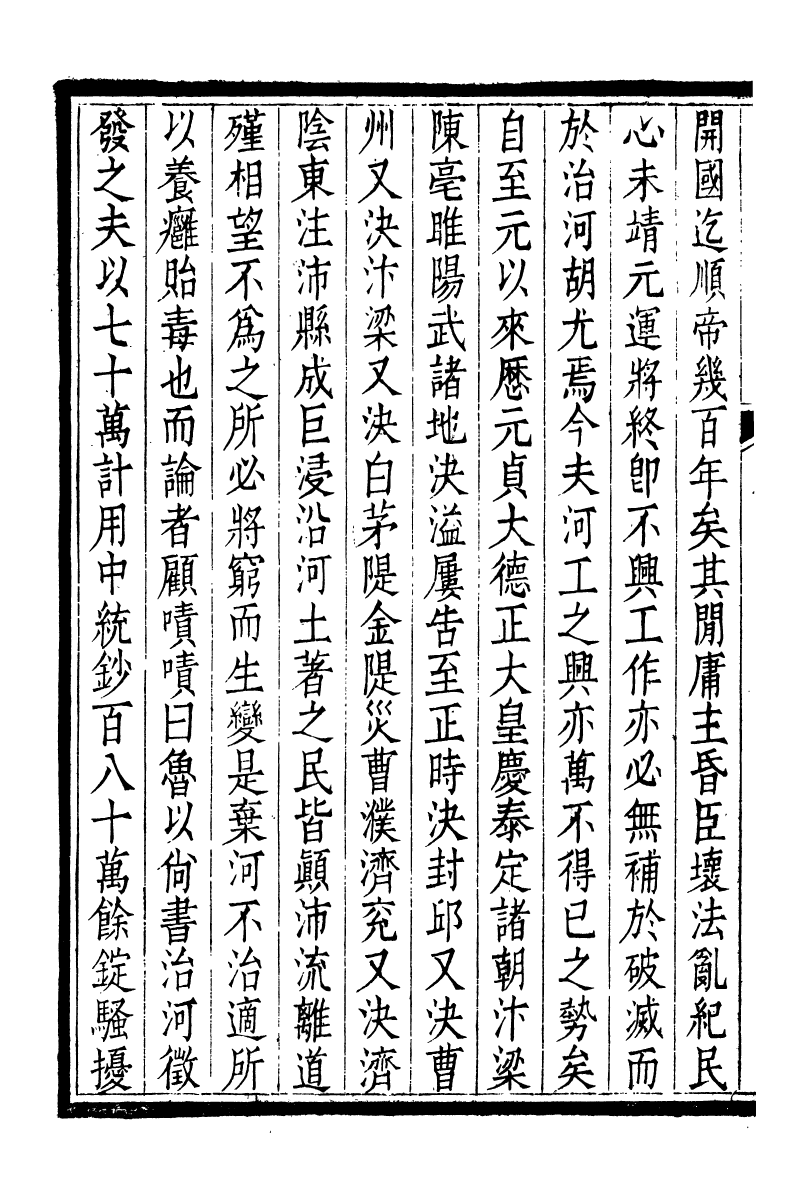 開國迄順帝幾百年矣其閒庸主昏臣壞法亂紀民
心未靖元運將終卽不興工作亦必無補於破滅而
於治河胡尤焉今夫河工之興亦萬不得已之勢矣
自至元以來歷元貞大德正大皇慶泰定諸朝汴梁
陳亳睢陽武諸地決溢屢告至正時決封邱又決曹
州又決汴梁又決白茅隄金隄災曹濮濟兖又決濟
陰東注沛縣成巨浸沿河土著之民皆顚沛流離道
殣相望不爲之所必將窮而生變是棄河不治適所
以養癰貽毒也而論者顧嘖嘖曰魯以尙書治河徵
發之夫以七十萬計用中統鈔百八十萬餘錠騷擾